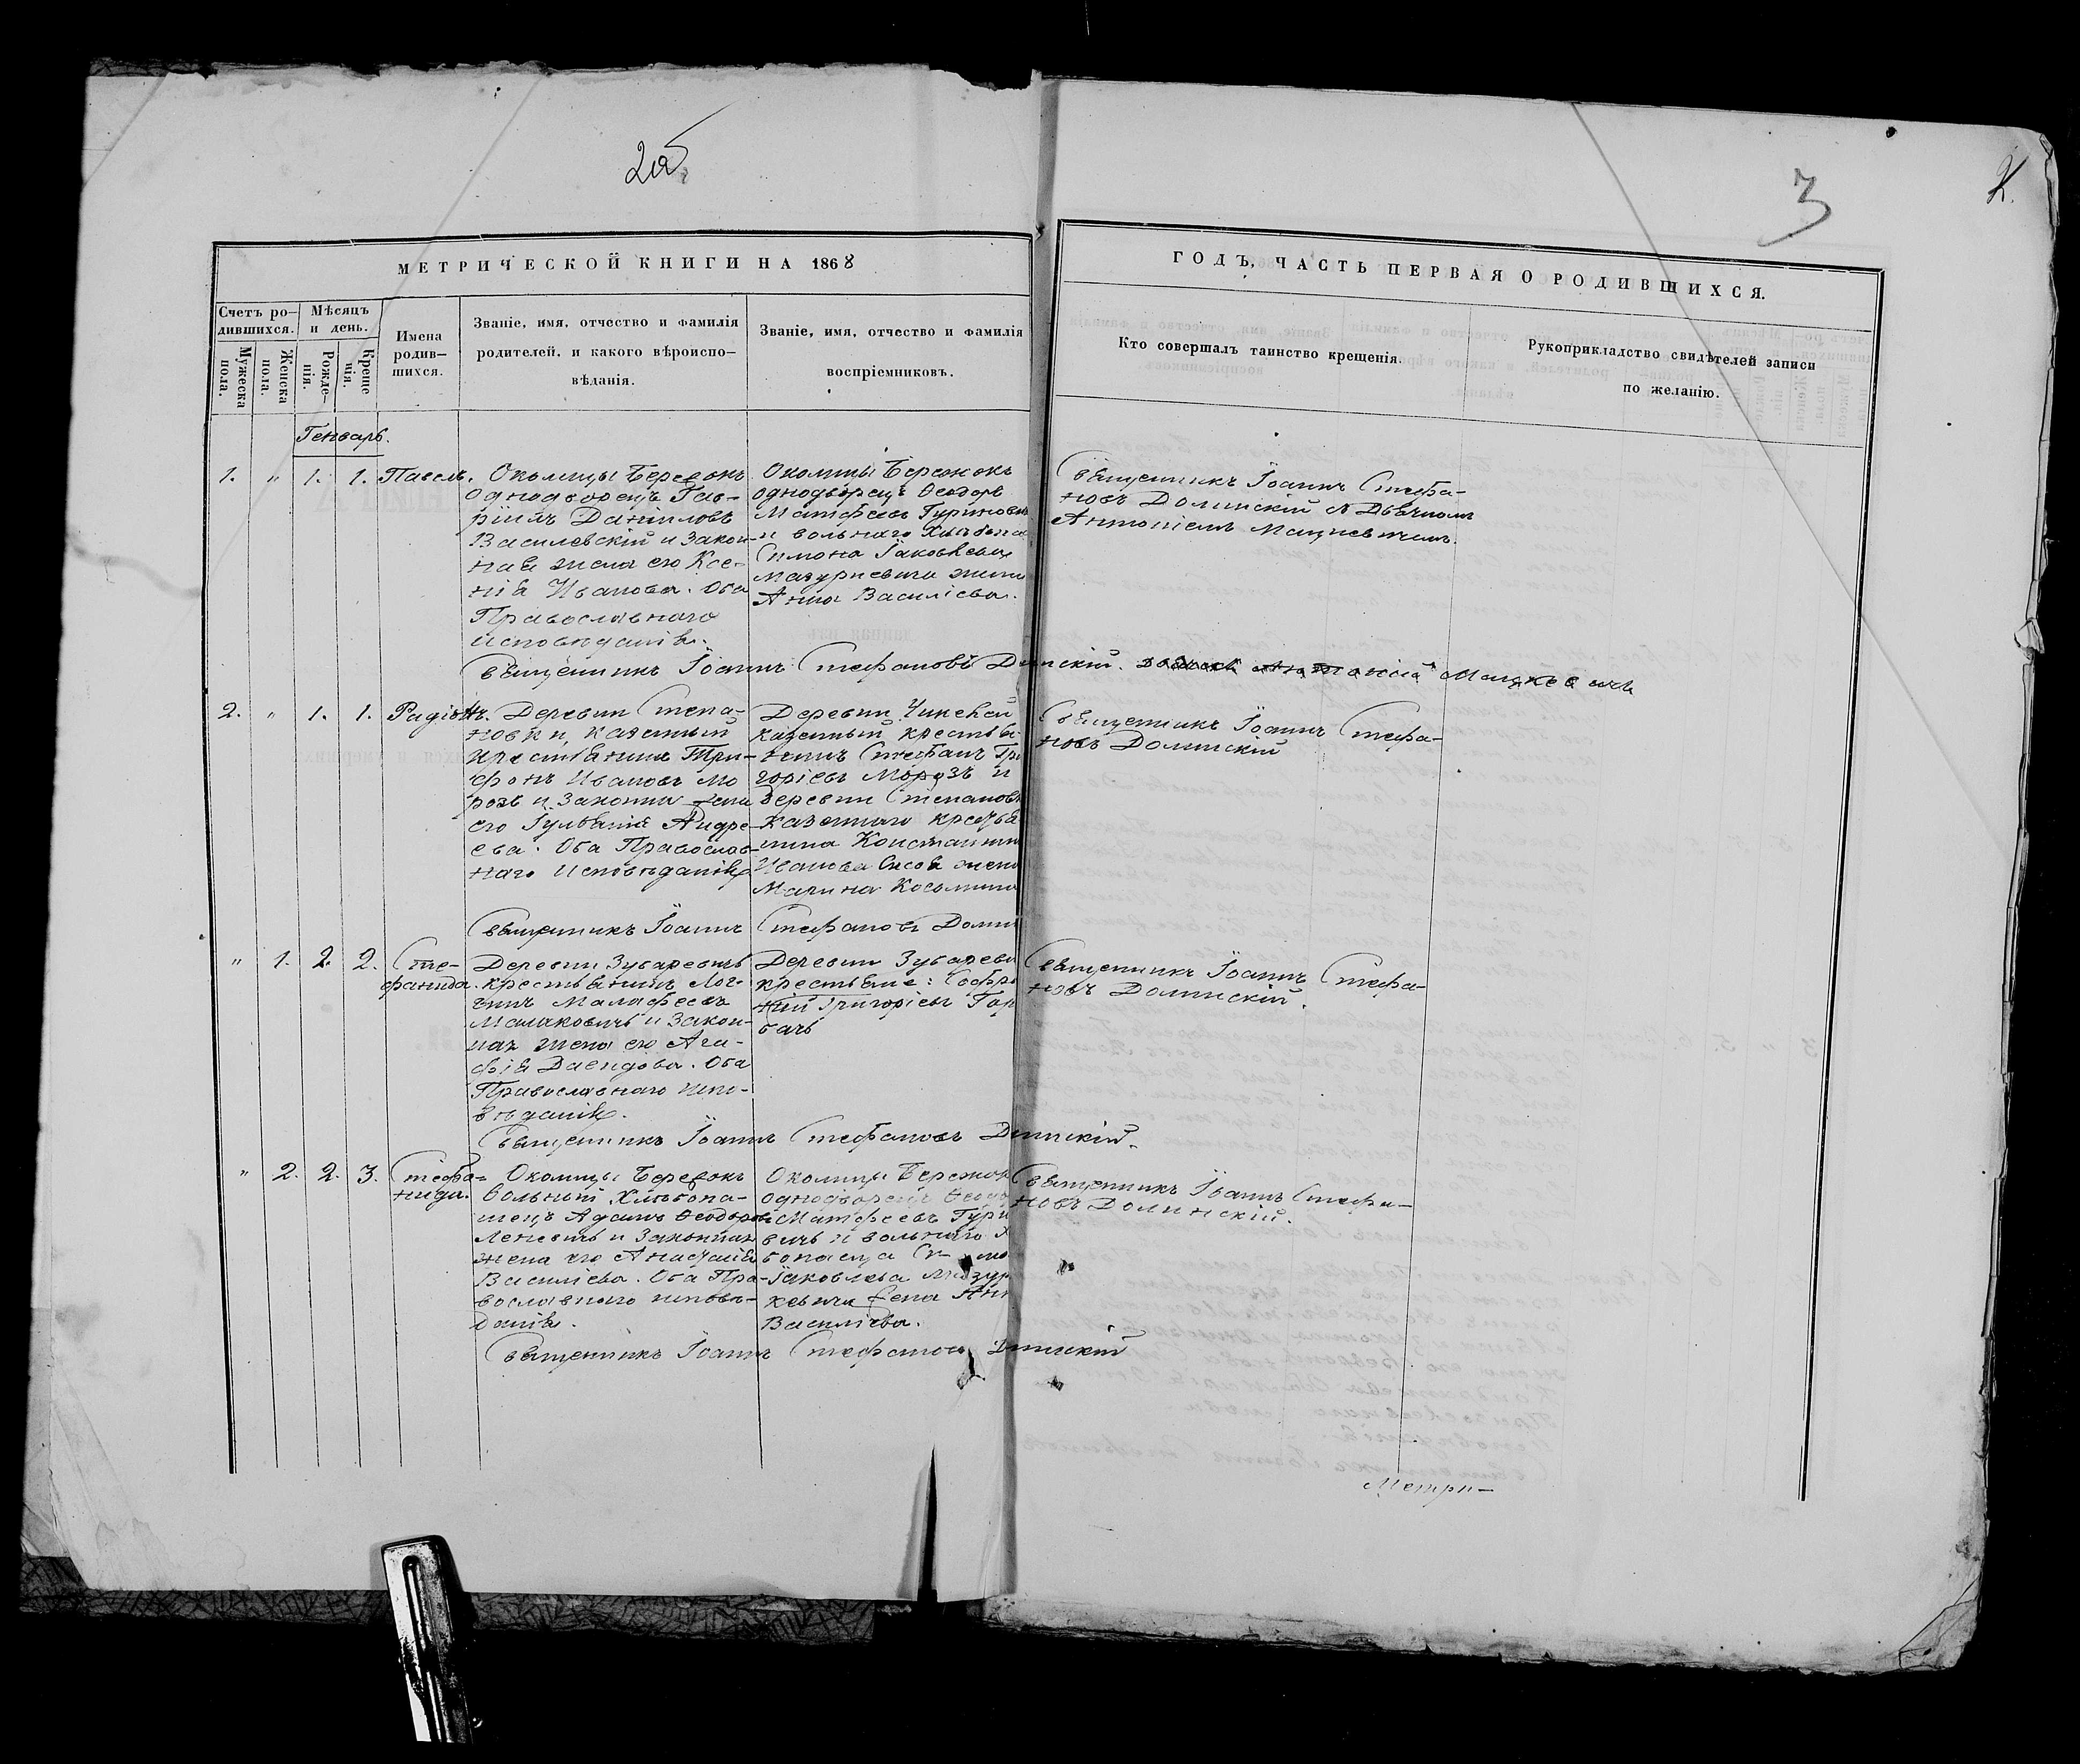 2об
3
МЕТРИЧЕСКОЙ КНИГИ НА 1868
ГОДЪ, ЧАСТЬ ПЕРВАЯ О РОДИВШИХСЯ.
Счетъ ро–
дившихся.
Мѣсяцъ
и день.
Мужеска
пола.
Женска
пола.
Рожде–
нія.
Креще
нія.
Имена
родив–
шихся.
Званіе, имя, отчество и фамилія
родителей, и какого вѣроиспо–
вѣданія.
Званіе, имя, отчество и фамилія
воспріемниковъ.
Кто совершалъ таинство крещенія.
Рукоприкладство свидѣтелей записи
по желанію.
Генварь.
1. " 1. 1. Павелъ.
Околицы Бережокъ
Однодворецъ Гав–
ріилъ Даніиловъ
Василевскій и закон–
ная жена его Ксе–
нія Иванова. Оба
Православнаго
исповѣданія.
Околицы Бережокъ
однодворецъ Ѳеодоръ
Матфеевъ Гуринович
и вольнаго Хлѣбопа
Симона Іаковлева
Мазуркевича жена
Анна Василіева.
Священникъ Іоаннъ Стефа–
новъ Долинскій с Дьячкомъ
Антоніемъ Мацкевичемъ.
Священникъ Іоаннъ Стефановъ Д нскій. Мацкевичъ
2. " 1. 1. Радіонъ.
Деревни Степа–
новки, казенный
крестьянинъ Три–
фонъ Ивановъ Мо
розъ и законная жена
его Іуліанія Андре–
ева. Оба Православ–
наго Исповѣданія
Деревни
казенный крестья
нинъ Стефанъ Гри
горіевъ Морозъ и
деревни Степановк
казеннаго крестья
нина Константин
Иванова жена
Марина
Священникъ Іоаннъ Стефа–
новъ Долинскій
Священникъ Іоаннъ Стефановъ Долин
" 1. 2. 2. Сте–
фанида.
Деревни Зубаревичъ
крестьянинъ Лог–
гинъ Малафеевъ
Малаховичъ и закон–
ная жена его Ага–
фія Давидова. Оба
Православнаго испо–
вѣданія.
Деревни Зубареви
крестьяне: Софро
ній Григорісвъ Гор
бачъ
Священникъ Іоаннъ Стефа–
новъ Долинскій.
Священникъ Іоаннъ Стефановъ Д нскій.
" 2. 2. 3. Стефа–
нида.
Околицы Бережокъ
вольный Хлѣбопа–
шецъ Адамъ Ѳеодоровъ
Леневичъ и законная
жена его Анастасія
Василіева. Оба Пра–
вославнаго исповѣ–
данія.
Околицы Бережок
однодворецъ Ѳеодо
Матфеевъ Гури
вичъ и вольнаго Х
бопашца С мо
Іаковлева Мазур
кевича жена Анн
Василіева.
Священникъ Іоаннъ Стефа–
новъ Долинскій.
Священникъ Іоаннъ Стефановъ Д нскій
Метри–